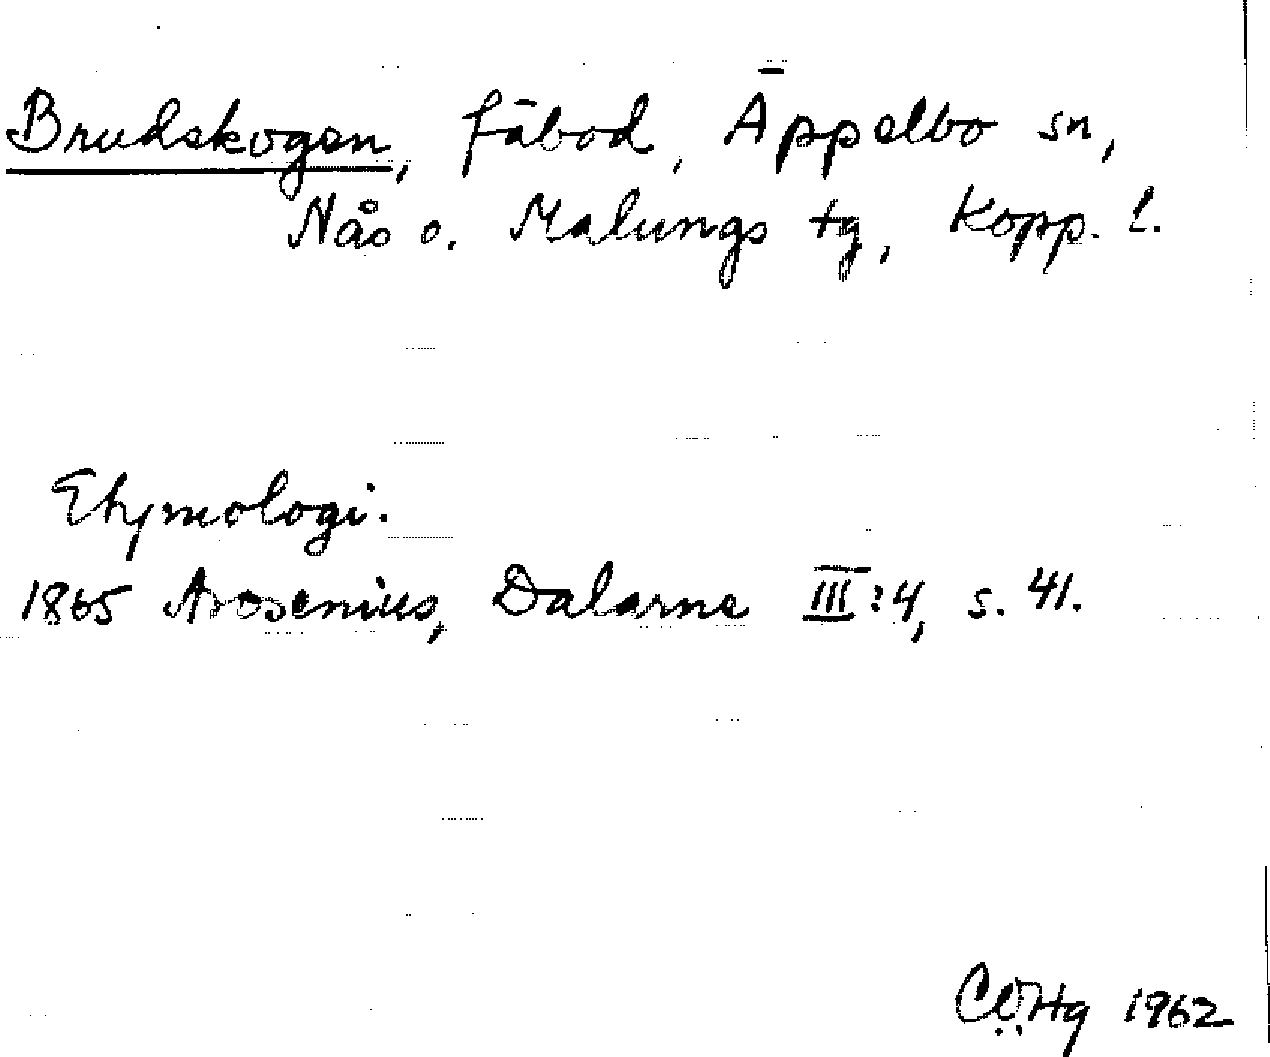 Brudskogen, fäbod, Äppelbo sn,
Nås o. Malungs tg, Kopp. l.
Etymologi.
1865 Arosenius, Dalarne III:4, s. 41.
1962